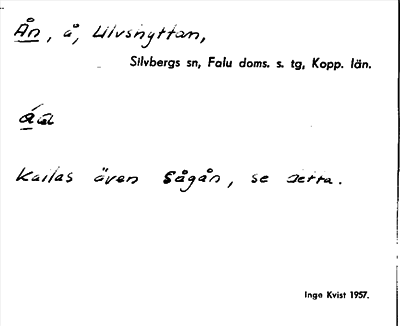 Ån, å, Ulvshyttan,
Silvbergs sn, Falu doms. s. tg, Kopp. län.
Kallas även Sågån, se detta.
Inge Kvist 1957.